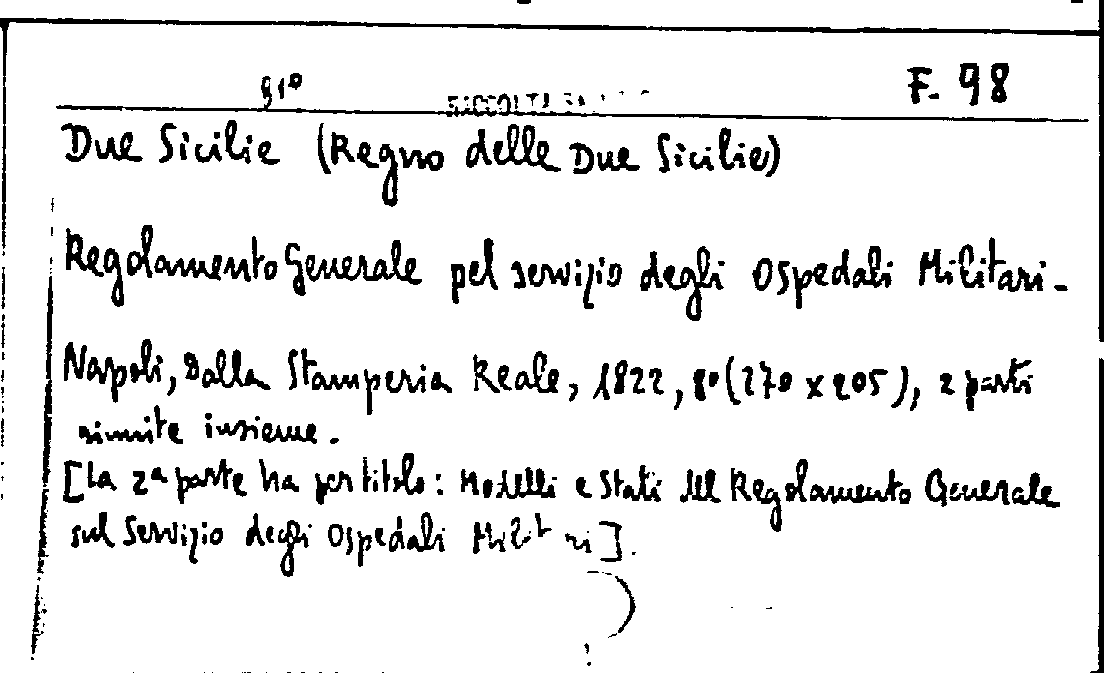 91º F. 98
RACCOLTA
Due Sicilie (Regno delle Due Sicilie)
Regolamento Generale pel servizio degli Ospedali Militari -
Napoli, Dalla Stamperia Reale, 1822, 8º (270 x 205), 2 parti
riunite insieme.
[La 2ª parte ha per titolo: Modelli e Stati del Regolamento Generale
sul Servizio degli Ospedali Militari].